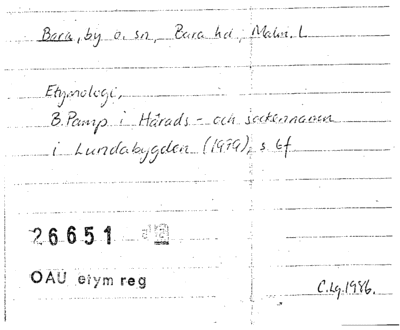 Bara, by o. sn, Bara hd, Malm. l.
Etymologi,
B. Pamp i Härads- och sockennamn
i Lundabygden (1979), s 6f
26651
OAU etym reg
C.Lg. 1986.